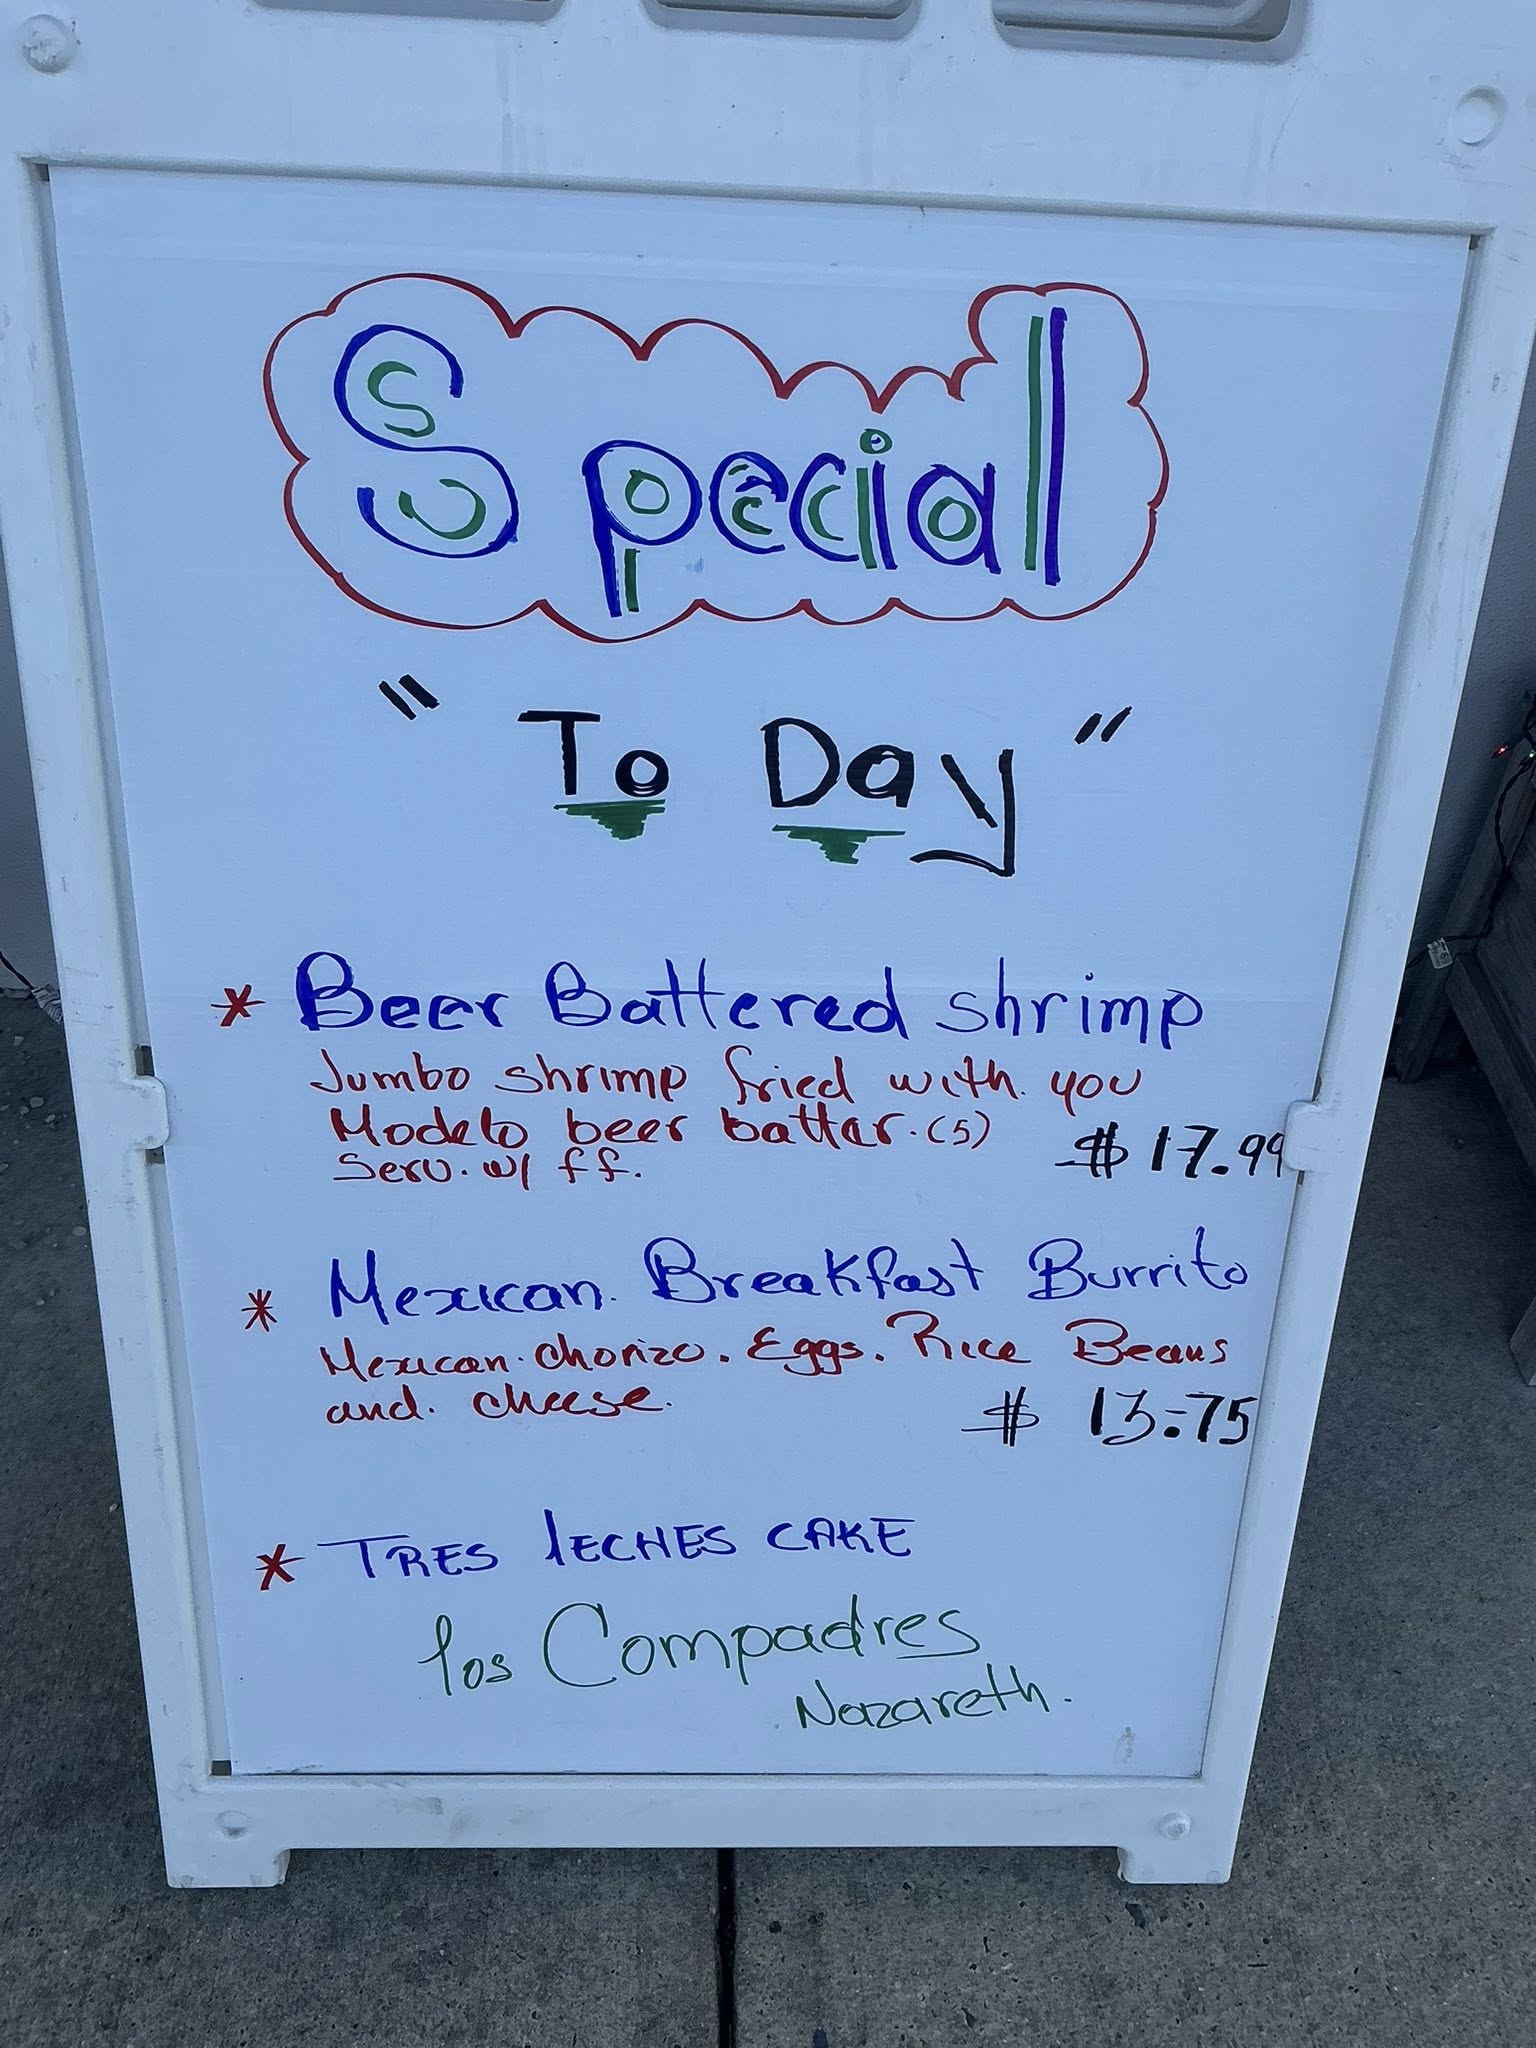 Special
" To Day "
* Beer Battered shrimp
Jumbo shrimp fried with you
Modelo beer batter. (5)
Serv. w/ ff.
$ 17.99
* Mexican Breakfast Burrito
Mexican chorizo. Eggs. Rice Beans
and cheese.
$ 13.75
* TRES lECHES CAKE
los Compadres
Nazareth.